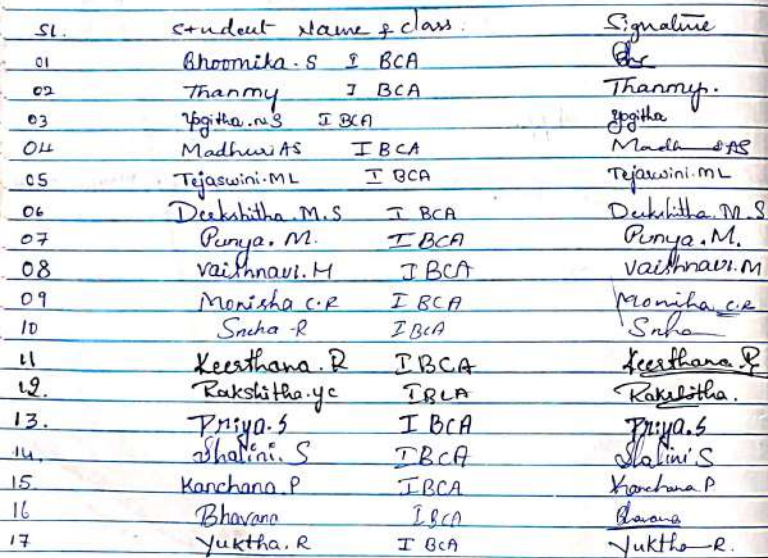 Sl. Student Name & class. Signature
01 Bhoomika.S I BCA
02 Thanmy I BCA Thanmy.
03 Yogitha.N.S I BCA Yogitha
04 Madhuri AS I BCA AS
05 Tejaswini.ML I BCA Tejaswini.ML
06 Deekshitha.M.S I BCA Deekshitha.M.S
07 Punya.M. I BCA Punya.M.
08 Vaishnavi.M I BCA Vaishnavi.M
09 Monisha C.R I BCA Monisha C.R
10 Sneha-R I BCA Sneha
11 Keerthana.R I BCA Keerthana R
12. Rakshitha.yc I BCA Rakshitha.
13. Priya.S I BCA Priya.S
14. Shalini.S I BCA Shalini S
15. Kanchana.P I BCA Kanchana P
16 Bhavana I BCA Bhavana
17 Yuktha.R I BCA Yuktha-R.